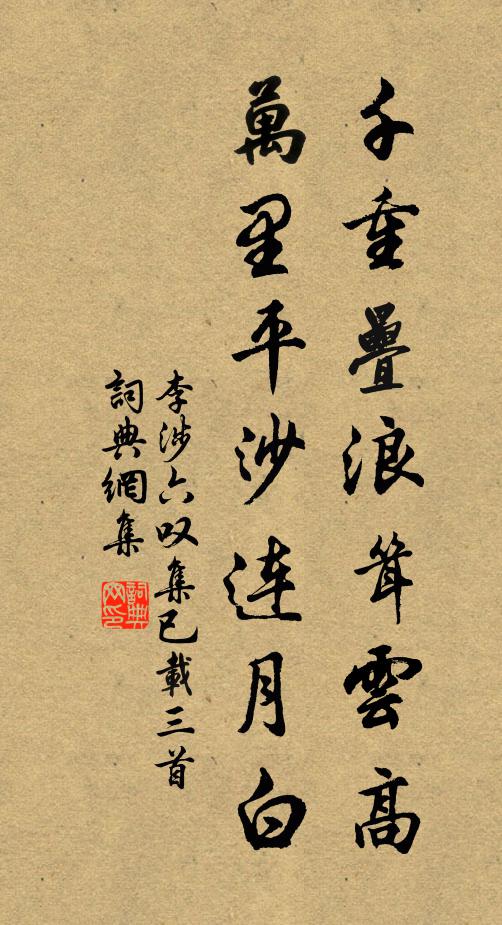 千重疊浪聳雲高
萬里平沙連月白
李涉六叹集已載三首
詞典網集
詞典網印